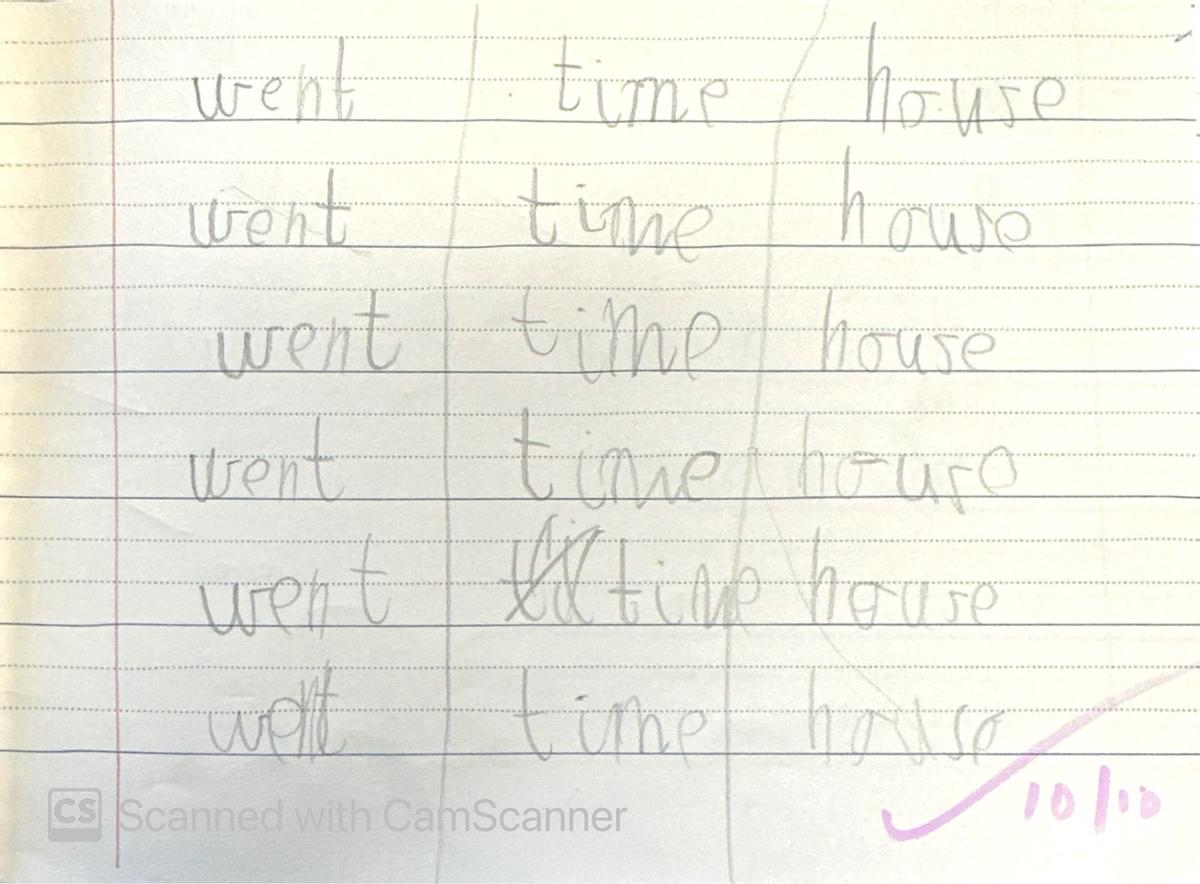 went time house
went time house
went time house
went time house
went time house
went time house
10/10
CS Scanned with CamScanner